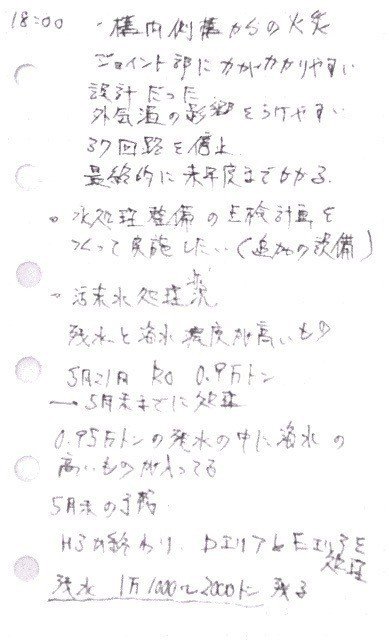 18:00 ・構内側溝からの火災
ジョイント部に力がかかりやすい
設計だった
外気温の影響をうけやすい
37回路を停止
最終的に来年度までかかる
・水処理設備の点検計画を
つくって実施したい(追加の設備)
・汚染水処理
残水と海水濃度が高いもの
5月21日 RO 0.9万トン
→5月末までに処理
0.95万トンの残水の中に海水の
高いもの
5月末の予
H5が終わり、DエリアとEエリアを
処理
残水 1万1000〜2000トン残る